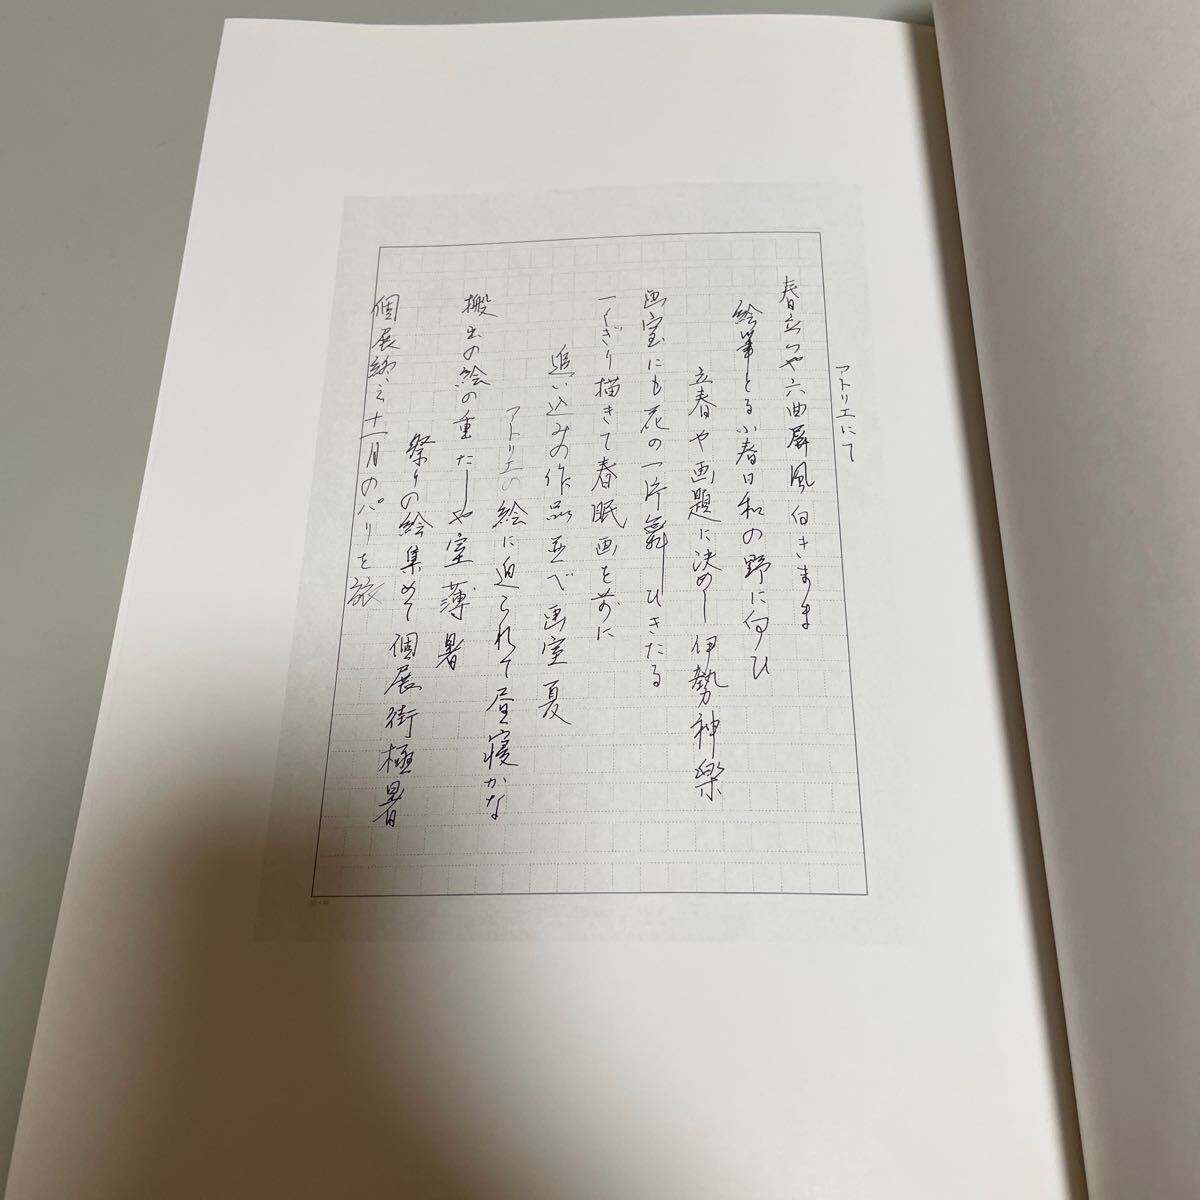 アトリエにて
春立つや六曲屏風白きまま
絵筆とる小春日和の野に向ひ
立春や画題に決めし伊勢神楽
画室にも花の一片舞ひきたる
一くぎり描きて春眠画を前に
追い込みの作品並べ画室夏
アトリエの絵に迫られて昼寝かな
搬出の絵の重たしや室薄暑
祭りの絵集めて個展街極暑
個展終え十一月のパリを旅